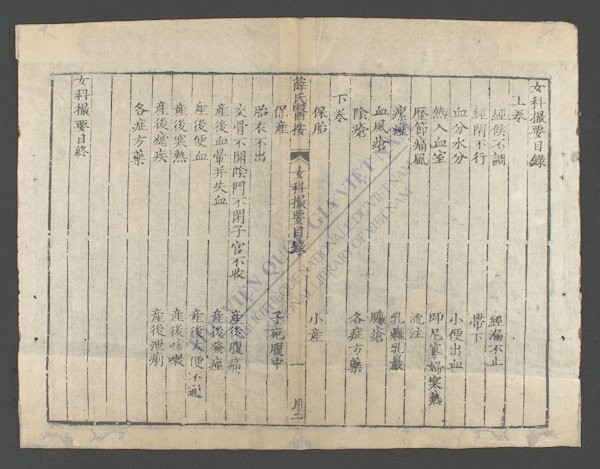 女科撮要目録
上卷
經候不調 經漏不止
經閉不行 帶下
血分水分 小便出血
熱入血室 師尼寡婦寒熱
歷節痛風 流注
瘰癧 乳癰乳巖
血風瘡 臁瘡
陰瘡 各症方藥
下卷
保胎 小産
保産 子死腹中
胎衣不出
交骨不開陰門不閉子宫不收
産後血暈并失血 産後腹痛
産後便血 産後發痙
産後寒熱 産後大便不通
産後瘧疾 産後咳嗽
各症方藥 産後泄痢
女科撮要目終
薛氏醫按 女科撮要目錄 一
THƯ VIỆN QUỐC GIA VIỆT NAM
BIBLIOTHÈQUE NATIONALE DU VIETNAM
NATIONAL LIBRARY OF VIETNAM